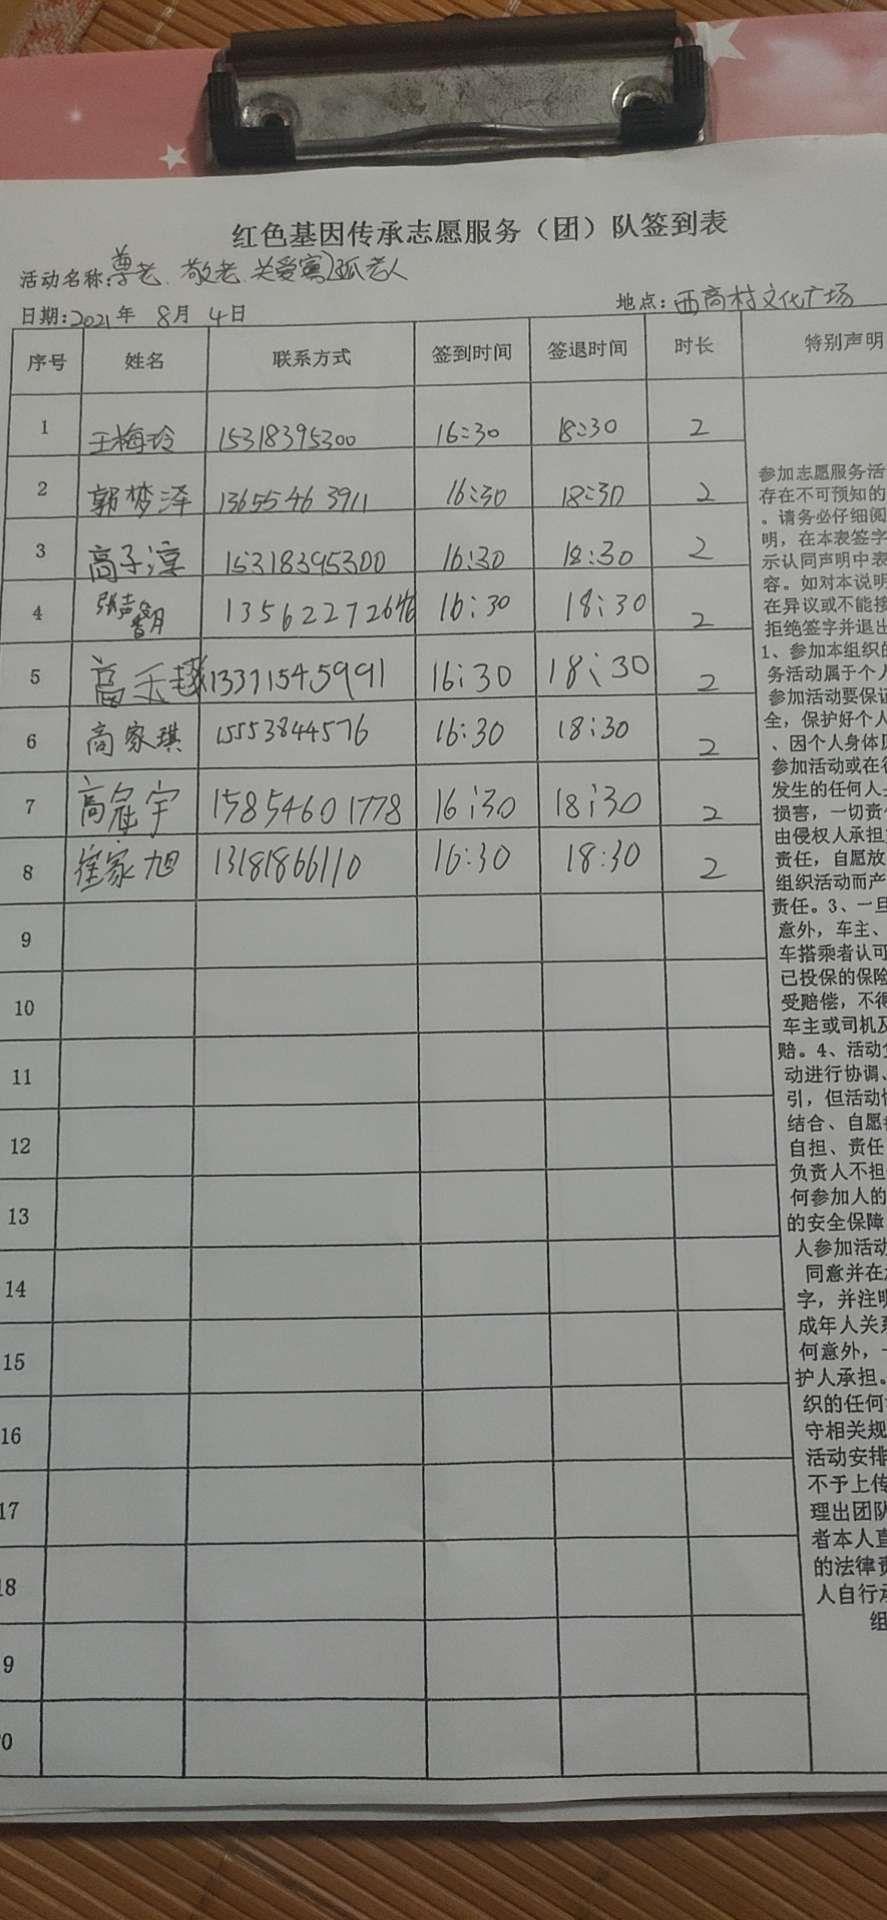 红色基因传承志愿服务（团）队签到表
活动名称:尊老、敬老、关爱寡孤老人
日期:2021年 8月 4日 地点:西高村文化广场
序号 姓名 联系方式 签到时间 签退时间 时长 特别声明
1 王梅玲 15318395300 16:30 18:30 2
2 郭梦泽 13655463911 16:30 18:30 2
3 高子淳 15318395300 16:30 18:30 2
4 13562272646 16:30 18:30 2
5 高 13371545991 16:30 18:30 2
6 高家琪 15553844576 16:30 18:30 2
7 高冠宇 15854601778 16:30 18:30 2
8 崔家旭 13181866110 16:30 18:30 2
9
10
11
12
13
14
15
16
17
18
9
0
参加志愿服务活
存在不可预知的
。请务必仔细阅
明，在本表签字
示认同声明中表
容。如对本说明
在异议或不能接
拒绝签字并退出
1、参加本组织的
务活动属于个人
参加活动要保证
全，保护好个人
、因个人身体原
参加活动或在行
发生的任何人身
损害，一切责任
由侵权人承担
责任，自愿放
组织活动而产
责任。3、一旦
意外，车主、
车搭乘者认可
已投保的保险
受赔偿，不得
车主或司机及
赔。4、活动
动进行协调、
引，但活动
结合、自愿
自担、责任
负责人不担
何参加人的
的安全保障
人参加活动
同意并在
字，并注明
成年人关系
何意外，一
护人承担。
织的任何
守相关规
活动安排
不予上传
理出团队
者本人直
的法律责
人自行承
组